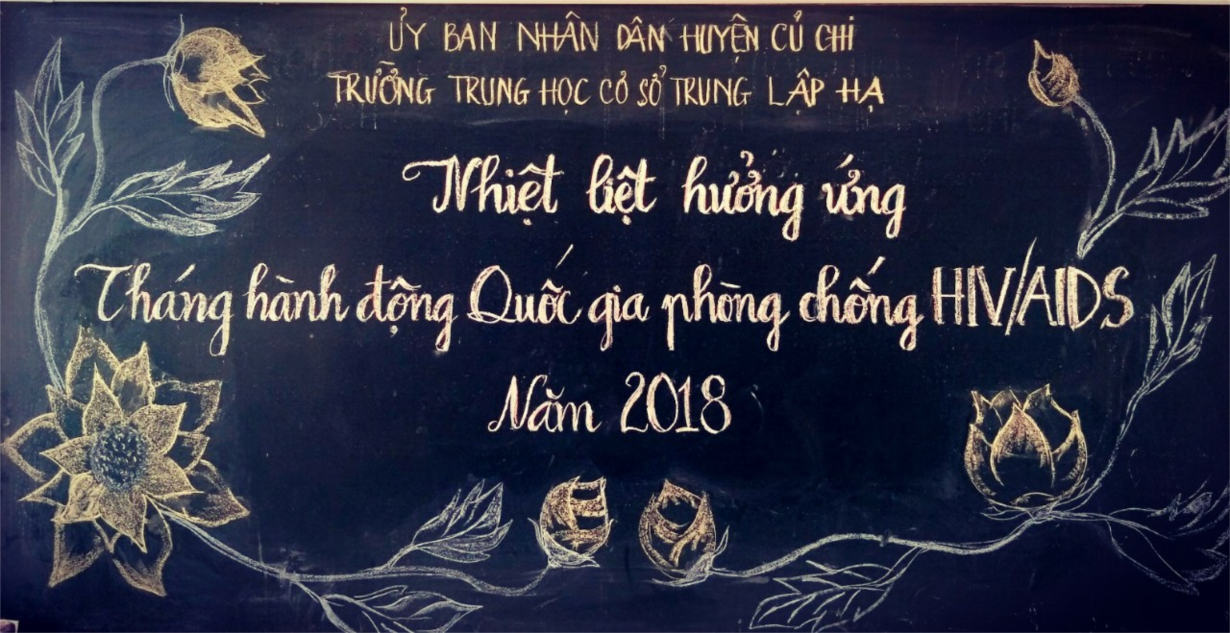 ỦY BAN NHÂN DÂN HUYỆN CỦ CHI
TRƯỜNG TRUNG HỌC CƠ SỞ TRUNG LẬP HẠ
Nhiệt liệt hưởng ứng
Tháng hành động Quốc gia phòng chống HIV/AIDS
Năm 2018